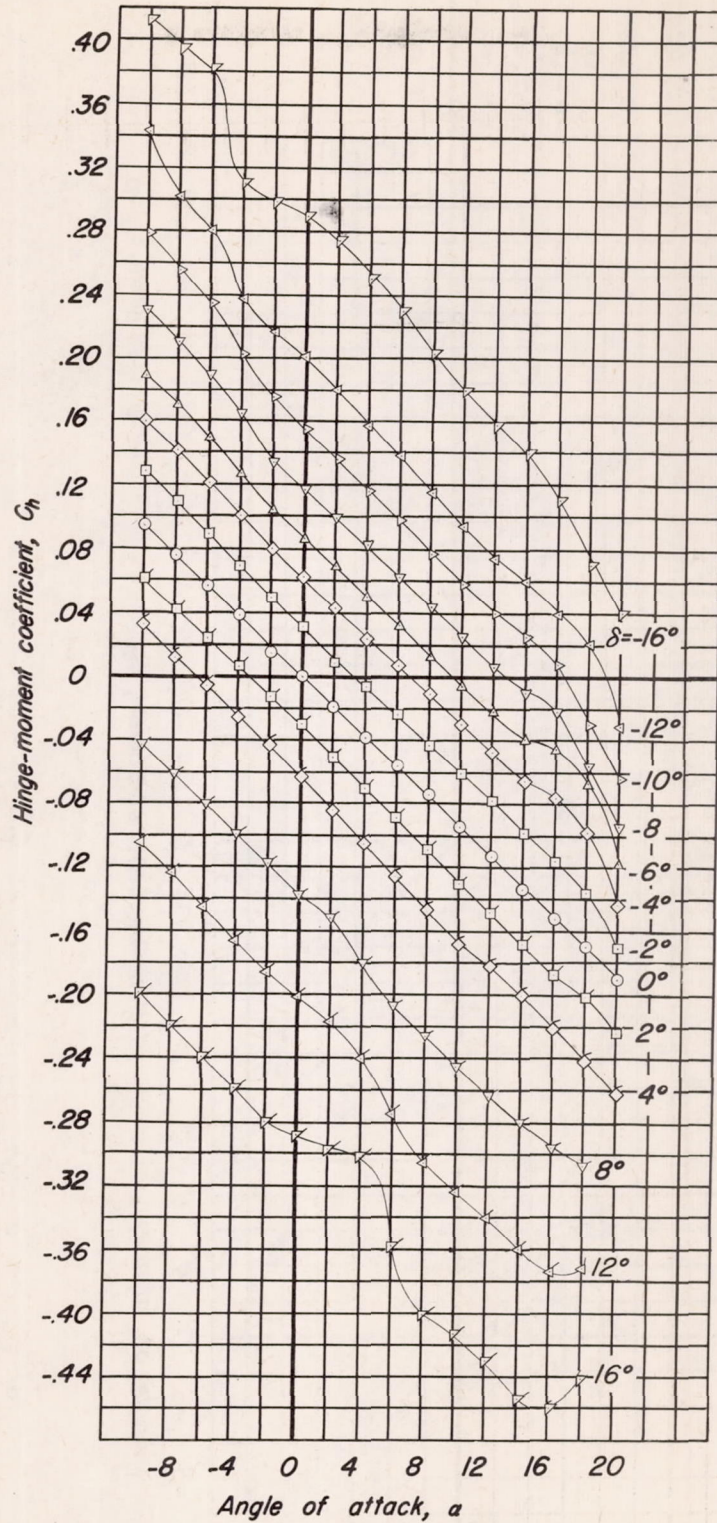 .40
.36
.32
.28
.24
.20
.16
.12
.08
.04
0
-.04
-.08
-.12
-.16
-.20
-.24
-.28
-.32
-.36
-.40
-.44
Hinge-moment coefficient, Ch
δ=-16°
-12°
-10°
-8
-6°
-4°
-2°
0°
2°
4°
8°
12°
16°
-8 -4 0 4 8 12 16 20
Angle of attack, α